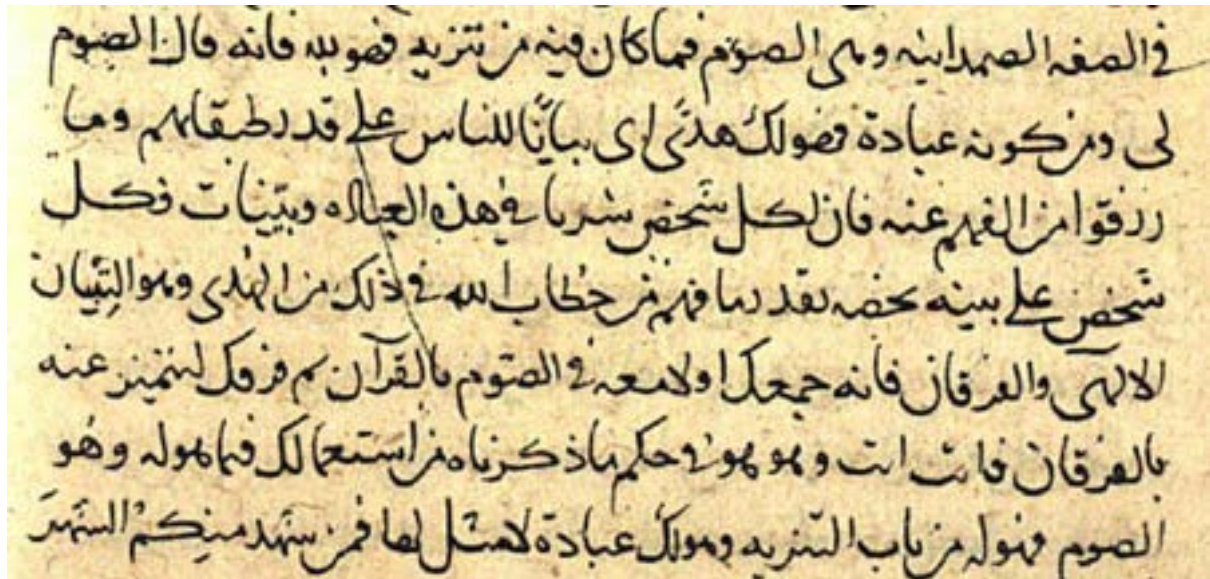 في الصفه الصمدانيه وهى الصوم فما كان فيه من تنزيه فهو لله فانه قال الصوم
لى ومن كونه عبادة فهو لك هدًى اى بيانًا للناس على قدر طبقاتهم وما
رزقوا من الفهم عنه فان لكل شخص شربا في هذه العباده وبيّنات فكل
شخص على بينه تخصه بقدر ما فهم من خطاب الله في ذلك من الهدى وهو التبيان
الالهى والفرقان فانه جمعك اولا معه في الصوم بالقرآن ثم فرقك لتتميز عنه
بالفرقان فانت انت وهو هو في حكم ما ذكرناه من استعمالك فيما هو له وهو
الصوم فهو له من باب التنزيه وهو لك عبادة لا مثل لها فمن شهد منكم الشهر